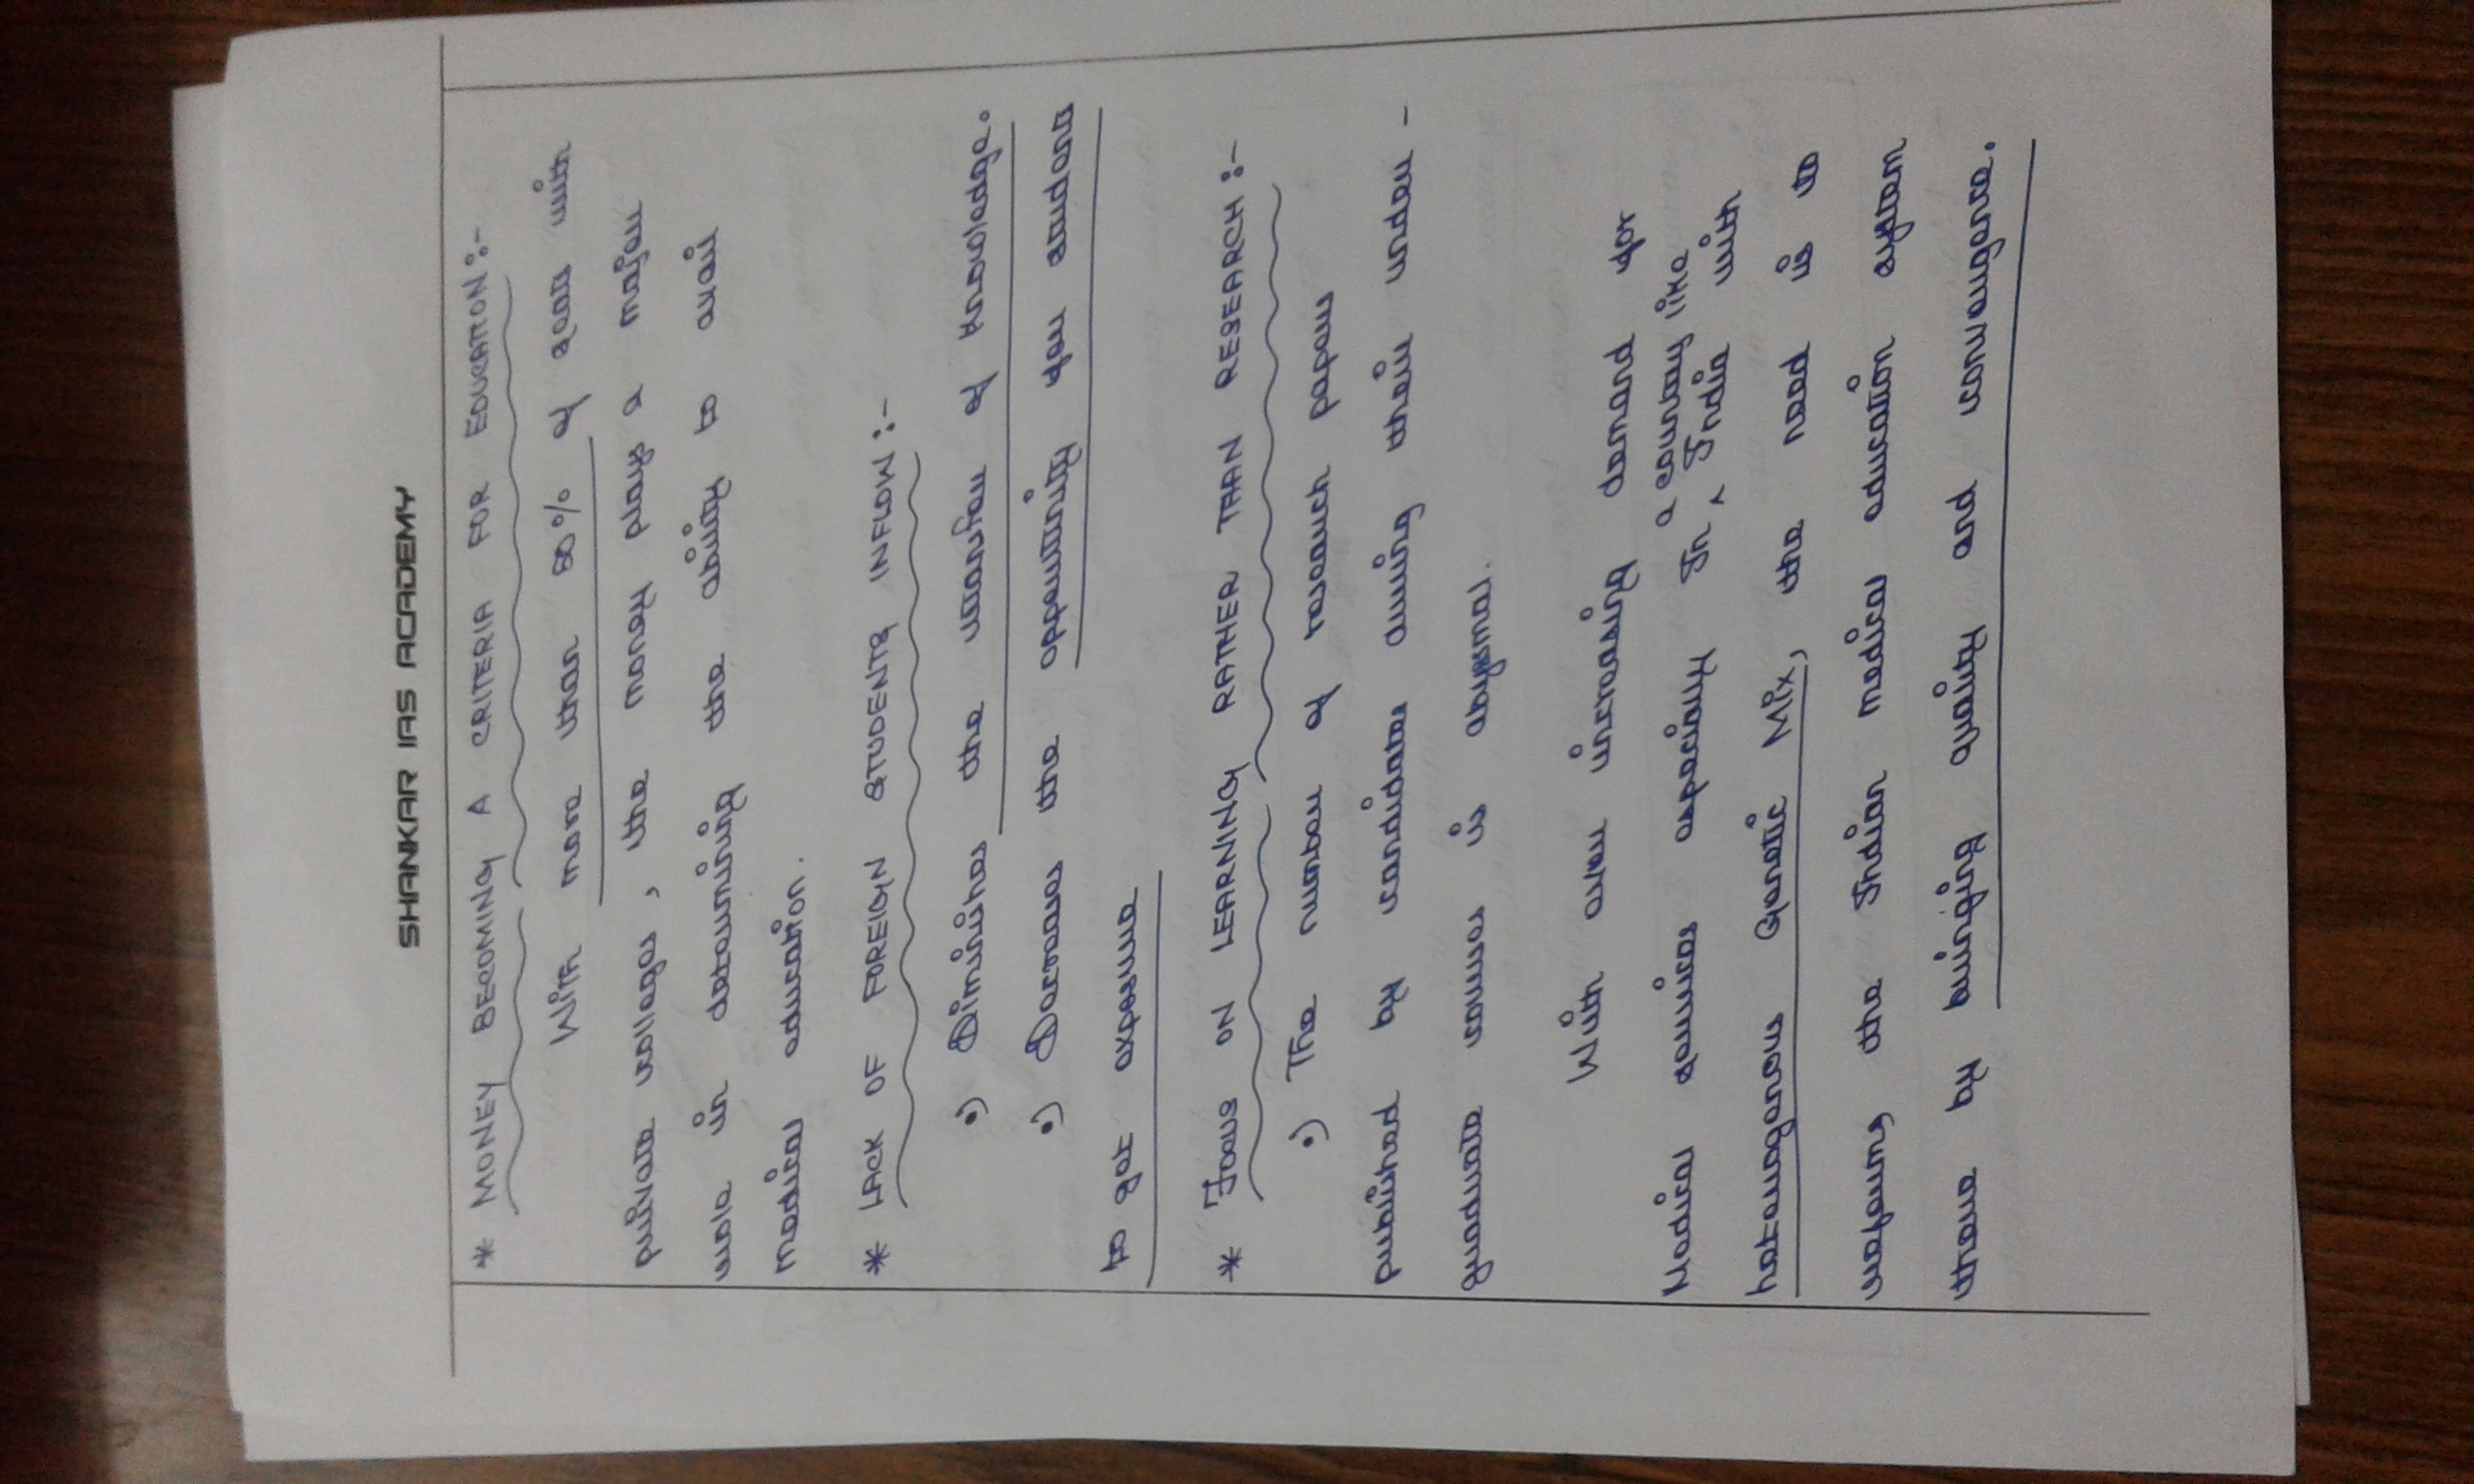 SHANKAR IAS ACADEMY
* MONEY BECOMING A CRITERIA FOR EDUCATION :-
With more than 50% of seats with
private colleges, the money plays a major
role in determining the ability to avail
medical education.
* LACK OF FOREIGN STUDENTS INFLOW :-
•) Diminishes the transfer of knowledge.
•) Decreases the oppurtinity for students
to get exposure
* FOCUS ON LEARNING RATHER THAN RESEARCH :-
•) The number of research papers
published by candidates during their under-
graduate courses is abysmal.
With ever increasing demand for
Medical services especially In ^ a country like India with
heterogenous Genetic Mix, the need is to
reform the Indian medical education system
there by bringing quality and convergence.